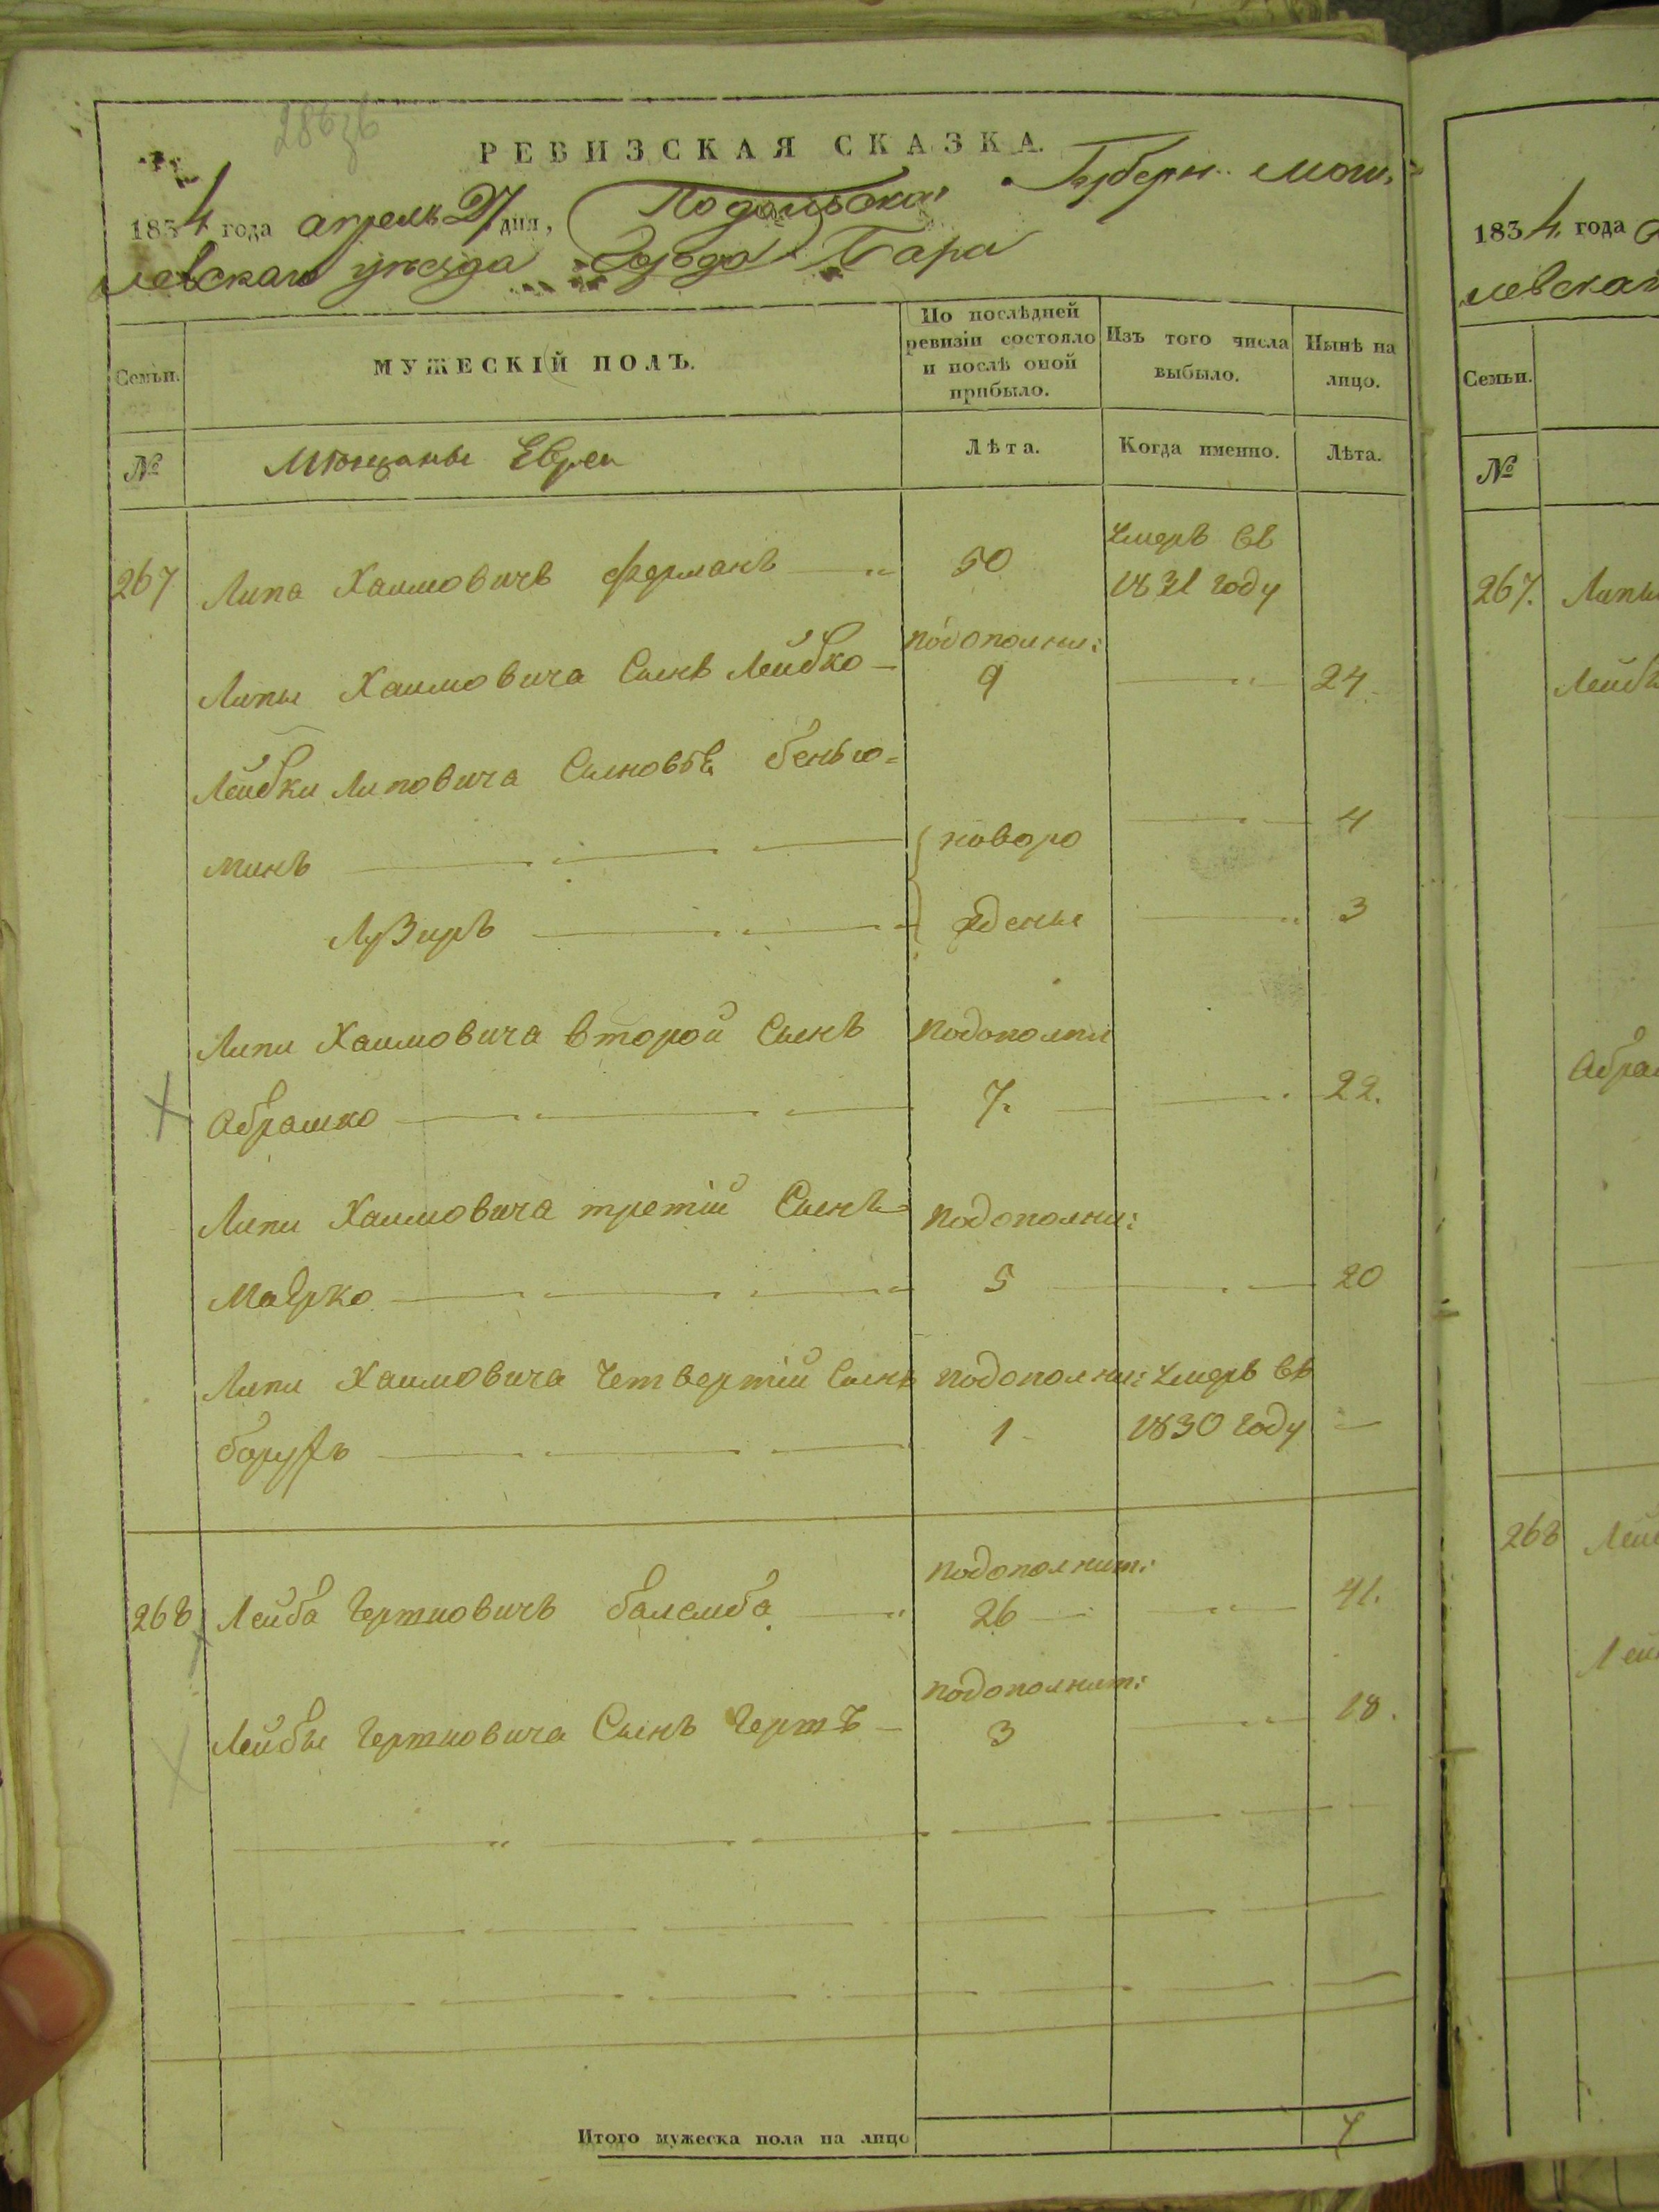 РЕВИЗСКАЯ СКАЗКА.
1834 года апрель 27 дня, Подольской Губерн. Моги,
левскаго уезда Города Бара
Семьи.
МУЖЕСКІЙ ПОЛЪ.
По послѣдней ревизіи состояло и послѣ оной прибыло.
Изъ того числа выбыло.
Нынѣ на лицо.
№
Мѣщаны Евреи
Лѣта.
Когда именно.
Лѣта.
267 Липа Хаимовичъ Ферманъ 50 Умеръ въ 1831 году
подополни:
Липы Хаимовича Сынъ Лейбко 9 24
Лейбки Липовича Сыновья Бенью=
минъ новоро 4
Лузиръ жденые 3
Липи Хаимовича второй Сынъ подополни
Абрашко 7. 22.
Липи Хаимовича третій Сынъ подополни:
Маерко 5 20
Липи Хаимовича Четвертій Сынъ подополни: Умеръ въ
Борухъ 1 1830 году
подополнит:
268 Лейба Гертковичъ Балемба 26 41.
подополнит:
Лейбы Гертковича Сынъ Гертъ 3 18.
Итого мужеска пола на лицо 7
1834 года
левскаг
Семьи.
№
267. Липы
Лейбк
Абраш
268 Лей
Лей